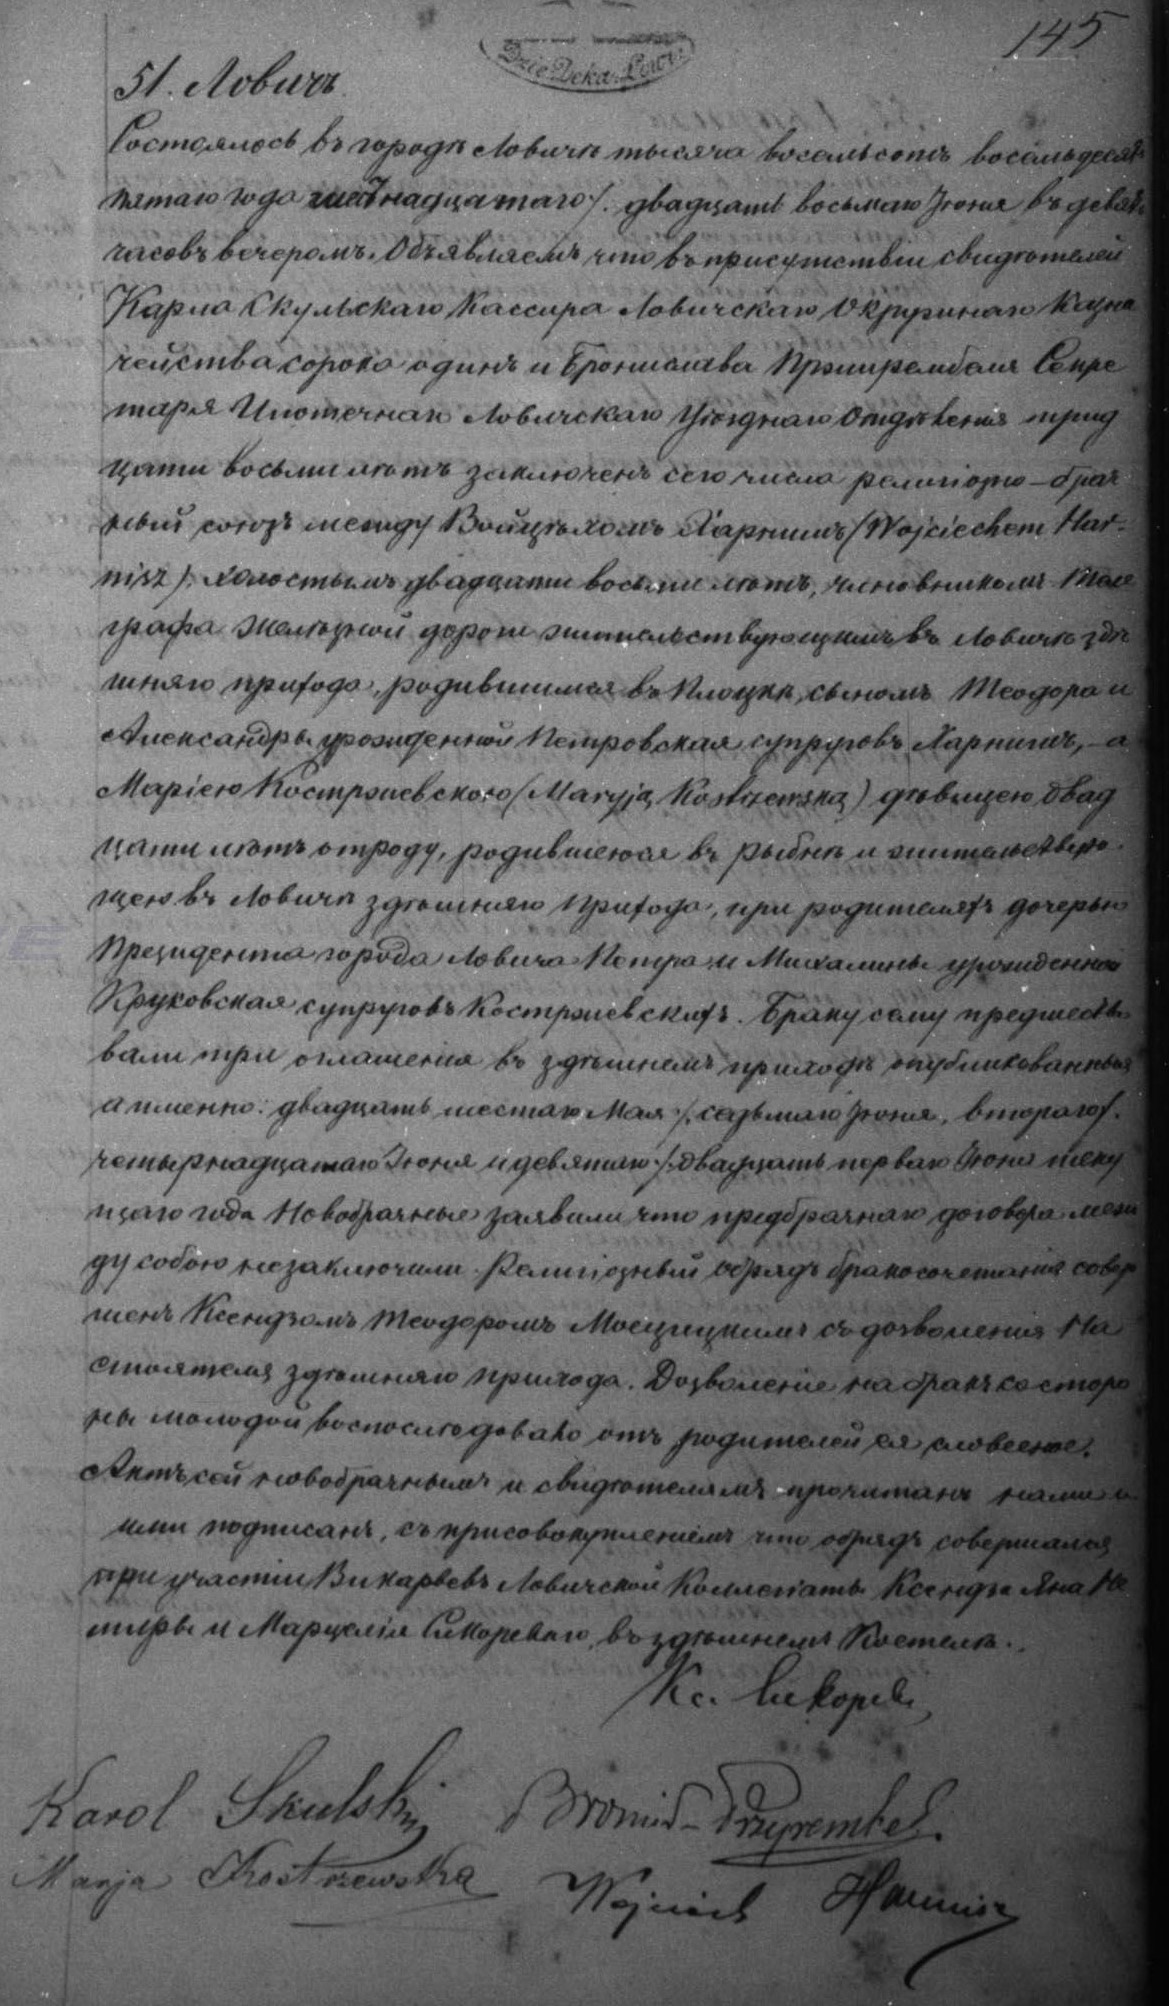 145
Dzie. Deka. Łowi.
51. Ловичъ
Состоялось въ городѣ Ловичѣ тысяча восемьсотъ восемьдесятъ
пятаго года шестнадцатаго /. двадцать восьмаго Іюня въ девять
часовъ вечеромъ. Объявляемъ что въ присутствіи свидѣтелей
Карла Скульскаго Кассира Ловичскаго Окружнаго Казна
чейства сорока одинъ и Бронислава Пржирембеля Секре
таря Ипотечнаго Ловичскаго Уѣзднаго Отдѣленія трид
цати восьми лѣтъ заключенъ сего числа религіозно-брач
ный союзъ между Войцѣхомъ Харнишъ (Wojciechem Har-
nisz) холостымъ двадцати восьми лѣтъ, чиновникомъ теле
графа желѣзной дороги жительствующимъ въ Ловичѣ здѣ
шняго прихода, родившимся въ Плоцкѣ, сыномъ Теодора и
Александры урожденной Петровская супруговъ Харнишъ, - а
Маріею Костржевскою (Maryją Kostrzewską) дѣвицею двад
цати лѣтъ отроду, родившеюся въ рыбнѣ и жительствую
щею въ Ловичѣ здѣшняго прихода, при родителяхъ дочерью
Президента города Ловича Петра и Михалины урожденной
Круковская супруговъ Костржевскихъ. Браку сему предшество
вали три оглашенія въ здѣшнемъ приходѣ опубликованныя
а именно: двадцать шестаго Мая /. седьмаго Іюня, втораго /.
четырнадцатаго Іюня и девятаго /. двадцать перваго Іюня теку
щаго года Новобрачные заявили что предбрачнаго договора меж
ду собою незаключили. Религіозный обрядъ бракосочетанія совер
шенъ Ксендзомъ Теодоромъ Мосцицкимъ съ дозволенія На
стоятеля здѣшняго прихода. Дозволеніе на бракъ со сторо
ны молодой воспослѣдовало отъ родителей ея словесное.
Актъ сей новобрачнымъ и свидѣтелямъ прочитанъ нами и
ими подписанъ, съ присовокупленіемъ что обрядъ совершался
при участіи Викаріевъ Ловичской Коллегіаты Ксендза Яна Не
миры и Марцелія Сикорскаго, въ здѣшнемъ Костелѣ.
Кс. Сикорскі
Karol Skulski Bronis- Przyrembel.
Marja Kostrzewska Wojciech Harnisz